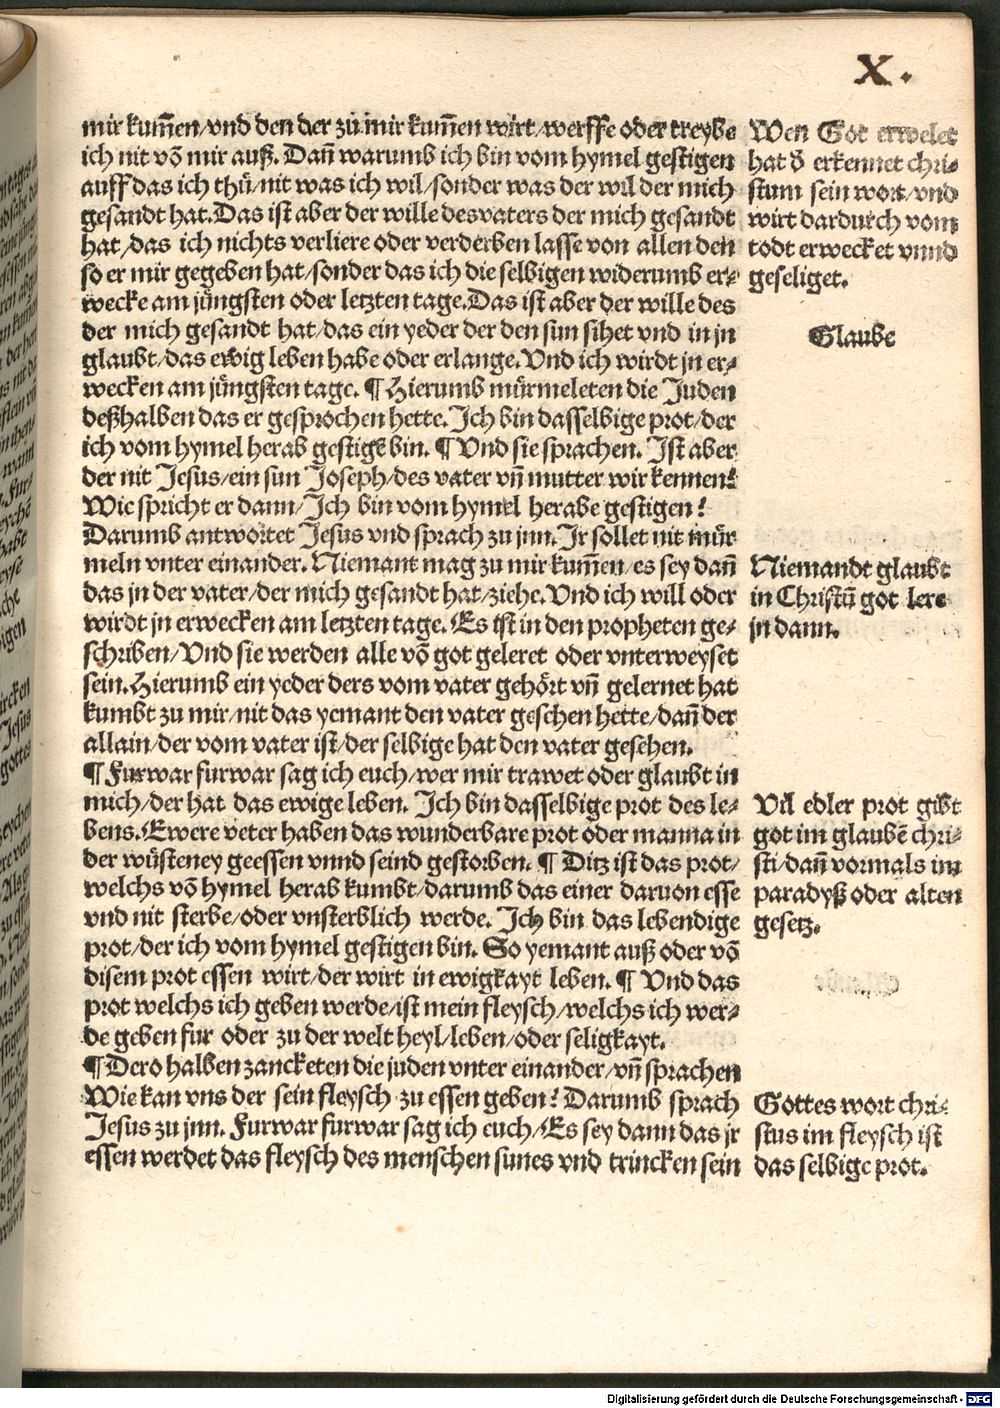 X.
mir kum̃en/vnd den der zů mir kum̃en wirt/werffe oder treybe
ich nit võ mir auß. Dañ warumb ich bin vom hymel gestigen
auff das ich thů/nit was ich wil/sonder was der wil der mich
gesandt hat. Das ist aber der wille des vaters der mich gesandt
hat/das ich nichts verliere oder verderben lasse von allen den
so er mir gegeben hat/sonder das ich die selbigen widerumb er⸗
wecke am jüngsten oder letzten tage. Das ist aber der wille des
der mich gesandt hat/das ein yeder der den sun sihet vnd in jn
glaubt/das ewig leben habe oder erlange. Vnd ich wirdt jn er⸗
wecken am jüngsten tage. ¶ Hierumb mürmeleten die Juden
deßhalben das er gesprochen hette. Ich bin dasselbige prot/der
ich vom hymel herab gestigẽ bin. ¶ Vnd sie sprachen. Ist aber
der nit Jesus/ein sun Joseph/des vater vñ mutter wir kennen?
Wie spricht er dann/Ich bin vom hymel herabe gestigen?
Darumb antwortet Jesus vnd sprach zu jnn. Ir sollet nit mür
meln vnter einander. Niemant mag zu mir kum̃en/es sey dañ
das jn der vater/der mich gesandt hat/ziehe. Vnd ich will oder
wirdt jn erwecken am letzten tage. Es ist in den propheten ge⸗
schriben/Vnd sie werden alle võ got geleret oder vnterweyset
sein. Hierumb ein yeder ders vom vater gehört vñ gelernet hat
kumbt zu mir/nit das yemant den vater gesehen hette/dañ der
allain/der vom vater ist/der selbige hat den vater gesehen.
¶ Furwar furwar sag ich euch/wer mir trawet oder glaubt in
mich/der hat das ewige leben. Ich bin dasselbige prot des le⸗
bens. Ewere veter haben das wunderbare prot oder manna in
der wüsteney geessen vnnd seind gestorben. ¶ Ditz ist das prot/
welchs võ hymel herab kumbt/darumb das einer daruon esse
vnd nit sterbe/oder vnsterblich werde. Ich bin das lebendige
prot/der ich vom hymel gestigen bin. So yemant auß oder võ
disem prot essen wirt/der wirt in ewigkayt leben. ¶ Vnd das
prot welchs ich geben werde/ist mein fleysch/welchs ich wer⸗
de geben fur oder zu der welt heyl/leben/oder seligkayt.
¶ Dero halben zancketen die juden vnter einander/vñ sprachen
Wie kan vns der sein fleysch zu essen geben? Darumb sprach
Jesus zu jnn. Furwar furwar sag ich euch/Es sey dann das jr
essen werdet das fleysch des menschen sunes vnd trincken sein
Wen Got erwelet
hat d̕ erkennet chri⸗
stum sein wort/vnd
wirt dardurch vom
todt erwecket vnnd
geseliget.
Glaube
Niemandt glaubt
in Christũ got lere
jn dann.
Vil edler prot gibt
got im glaubẽ chri⸗
sti/dañ vormals im
paradyß oder alten
gesetz.
Gottes wort chri⸗
stus im fleysch ist
das selbige prot.
Digitalisierung gefördert durch die Deutsche Forschungsgemeinschaft - DFG